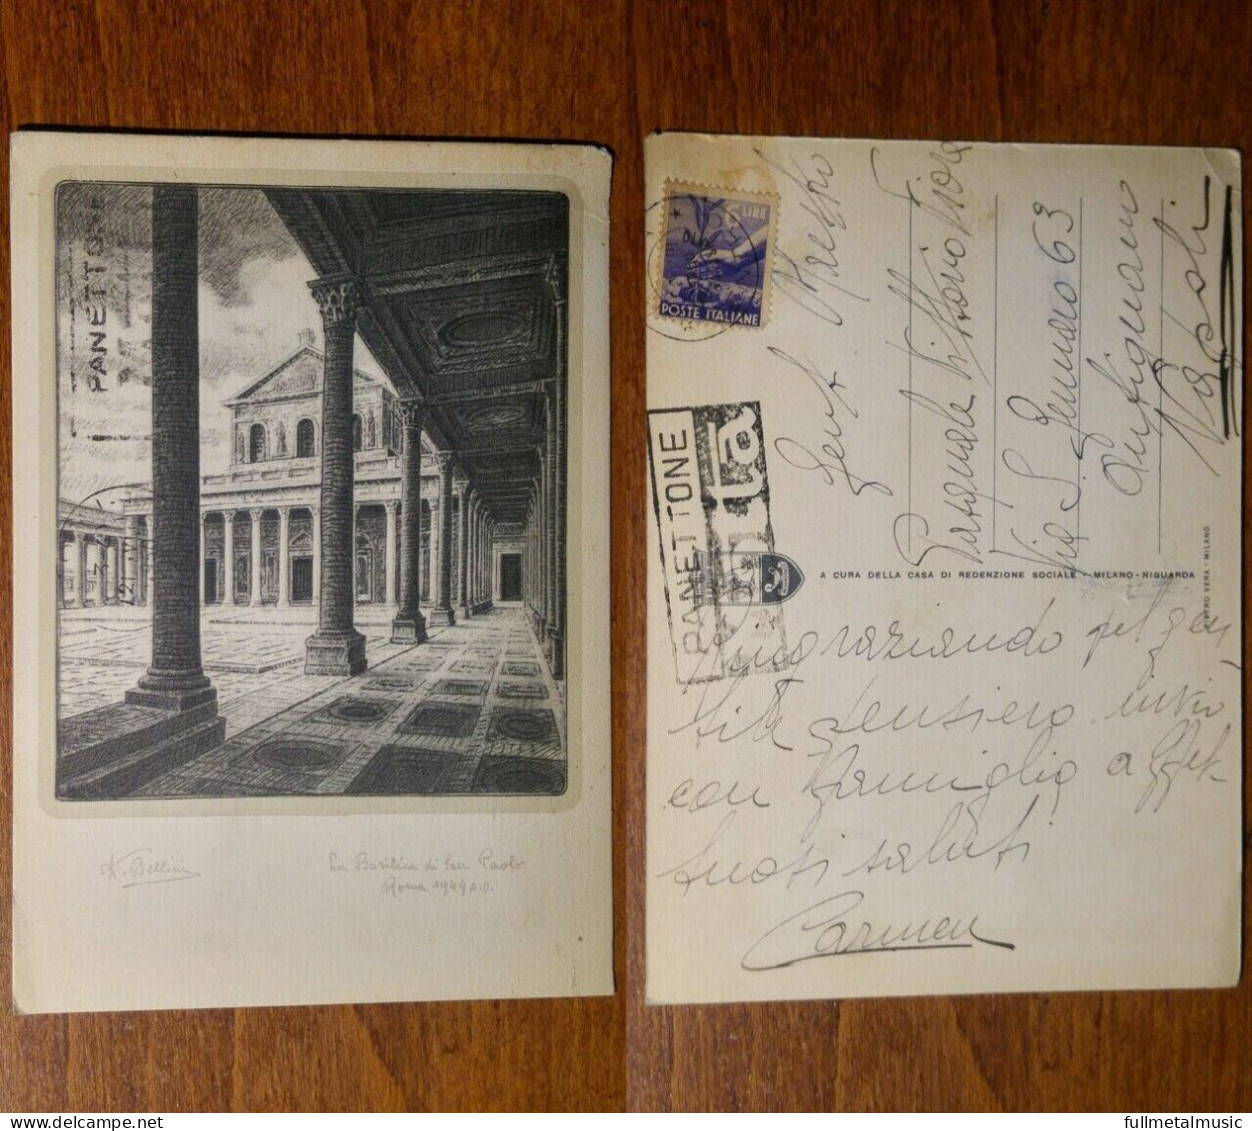 PANETTONE
A. Bellini
La Basilica di San Paolo
Roma 1949 A.D.
6 LIRE
POSTE ITALIANE
PANETTONE
Maestro
Pasquale Vittorio Fiore
Via S. Gennaro 63
Antignano
Napoli
A CURA DELLA CASA DI REDENZIONE SOCIALE - MILANO - NIGUARDA
VERA - MILANO
Ringraziando pel gen
tile pensiero invio
con famiglia affet
tuosi saluti
Carmen
fullmetalmusic